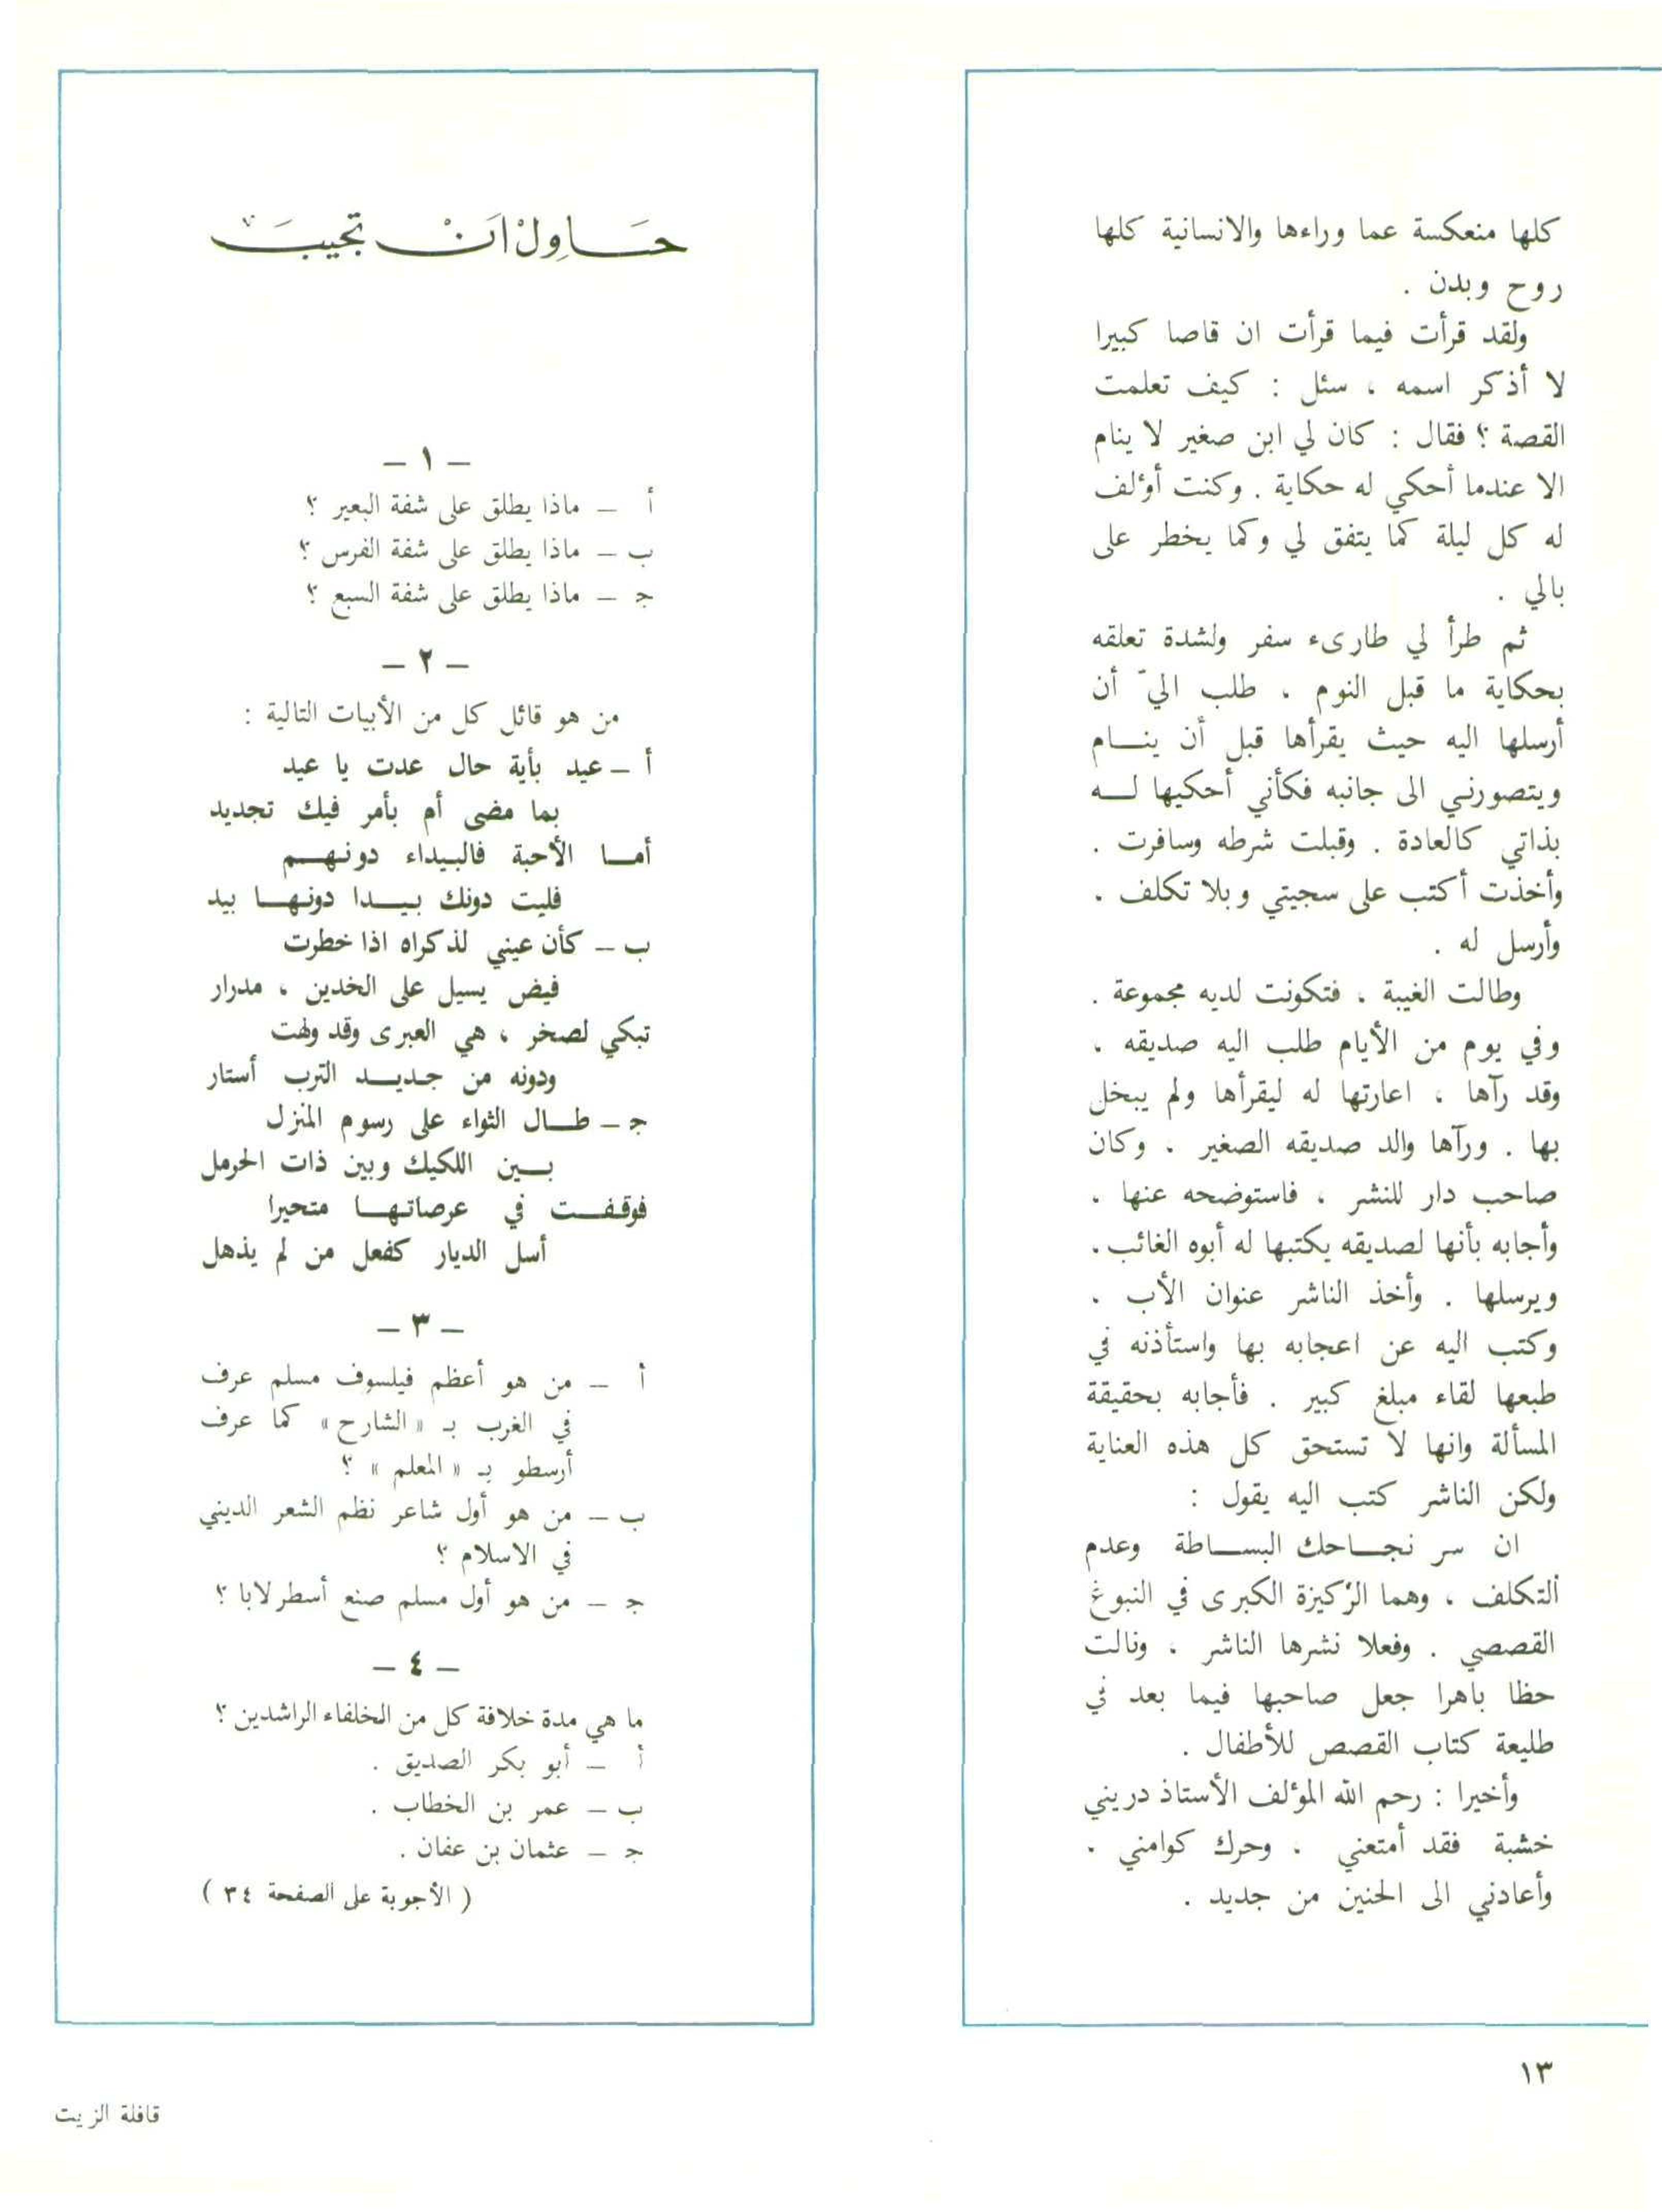 كلها منعكسة عما وراءها والانسانية كلها
روح وبدن .
ولقد قرأت فيما قرأت ان قاصا كبيرا
لا أذكر اسمه ، سئل : كيف تعلمت
القصة ؟ فقال : كان لي ابن صغير لا ينام
الا عندما أحكي له حكاية . وكنت أؤلف
له كل ليلة كما يتفق لي وكما يخطر على
بالي .
ثم طرأ لي طارىء سفر ولشدة تعلقه
بحكاية ما قبل النوم ، طلب الي ّ أن
أرسلها اليه حيث يقرأها قبل أن ينـام
ويتصورني الى جانبه فكأني أحكيها لـه
بذاتي كالعادة . وقبلت شرطه وسافرت .
وأخذت أكتب على سجيتي وبلا تكلف .
وأرسل له .
وطالت الغيبة ، فتكونت لديه مجموعة .
وفي يوم من الأيام طلب اليه صديقه ،
وقد رآها ، اعارتها له ليقرأها ولم يبخل
بها . ورآها والد صديقه الصغير . وكان
صاحب دار للنشر ، فاستوضحه عنها .
وأجابه بأنها لصديقه يكتبها له أبوه الغائب.
ويرسلها . وأخذ الناشر عنوان الأب .
وكتب اليه عن اعجابه بها واستأذنه في
طبعها لقاء مبلغ كبير . فأجابه بحقيقة
المسألة وانها لا تستحق كل هذه العناية
ولكن الناشر كتب اليه يقول :
ان سر نجـاحك البسـاطة وعدم
التكلف ، وهما الركيزة الكبرى في النبوغ
القصصي . وفعلا نشرها الناشر ، ونالت
حظا باهرا جعل صاحبها فيما بعد في
طليعة كتاب القصص للأطفال .
وأخيرا : رحم الله المؤلف الأستاذ دريني
خشبة فقد أمتعني ، وحرك كوامني .
وأعادني الى الحنين من جديد .
١٣
حَـاوِلْ انْ تجيبَ
– ١ –
أ – ماذا يطلق على شفة البعير ؟
ب – ماذا يطلق على شفة الفرس ؟
ج – ماذا يطلق على شفة السبع ؟
– ٢ –
من هو قائل كل من الأبيات التالية :
أ – عيد بأية حال عدت يا عيد
بما مضى أم بأمر فيك تجديد
أمـا الأحبة فالبيداء دونهـم
فليت دونك بيـدا دونهـا بيد
ب – كأن عيني لذكراه اذا خطرت
فيض يسيل على الخدين ، مدرار
تبكي لصخر ، هي العبرى وقد ولهت
ودونه من جديـد الترب أستار
ج – طـال الثواء على رسوم المنزل
بـين اللكيك وبين ذات الحرمل
فوقفـت في عرصاتهـا متحيرا
أسل الديار كفعل من لم يذهل
– ٣ –
أ – من هو أعظم فيلسوف مسلم عرف
في الغرب بـ « الشارح » كما عرف
أرسطو بـ « المعلم » ؟
ب – من هو أول شاعر نظم الشعر الديني
في الاسلام ؟
ج – من هو أول مسلم صنع أسطرلابا ؟
– ٤ –
ما هي مدة خلافة كل من الخلفاء الراشدين ؟
أ – أبو بكر الصديق .
ب – عمر بن الخطاب .
ج – عثمان بن عفان .
( الأجوبة على الصفحة ٣٤ )
قافلة الزيت